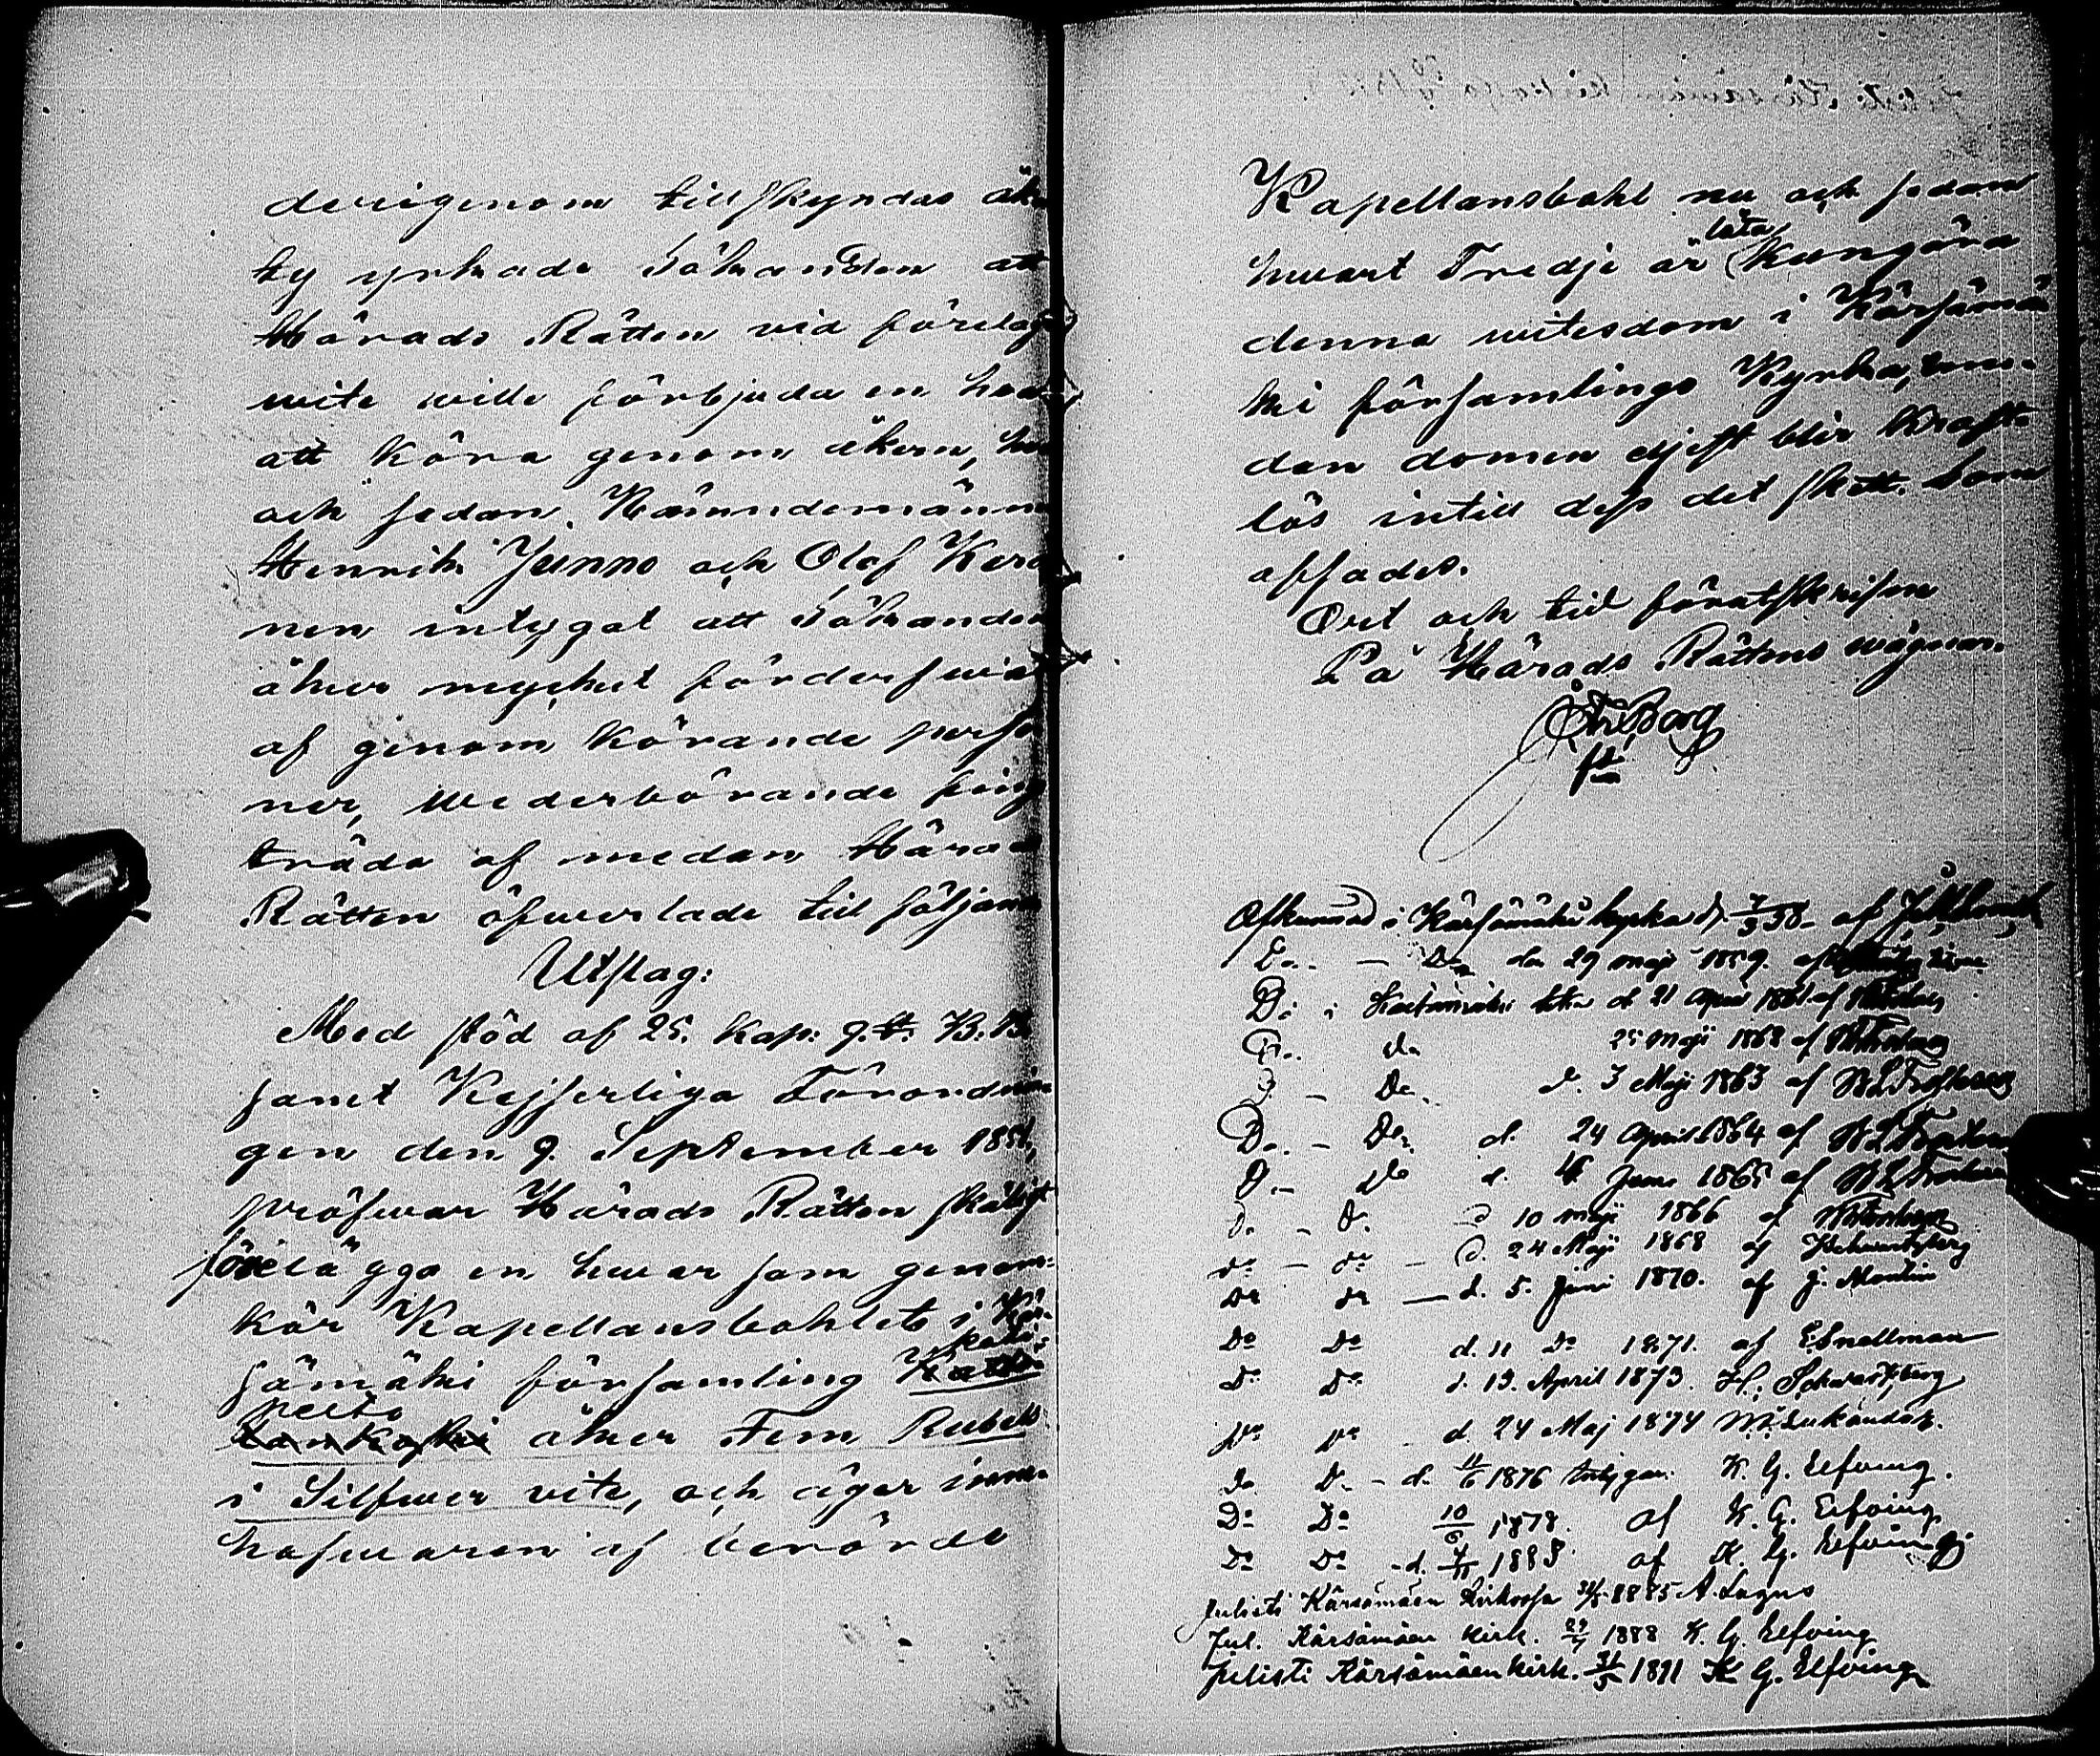 derigenom tillskyndas åk
ty yrkade Sökanden att
Härads Rätten vid förelagd
wite wille förbjuda en hvar
att köra genom åkern, hw
och sedan Nämndemännen
Henrik Junno och Olof Kera
nen intygat att Sökanden
åker mycket förderfwas
af genom körande perso
ner, Wederbörande fing
träda af medan Härads
Rätten öfwerlade till följande
Utslag:
Med stöd af 25. Kap: 9. §. B. B.
samt Kejserliga Förordnin
gen den 9. September 1851,
pröfwar Härads Rätten skäligt
förelägga en hwar som genom-
kör Kapellansbohlet i Kär-
sämäki församling
åker Fem Rubels
i Silfwer vite, och äger inne-
hafwaren af berörde
Kapellansbohl nu och sedan
hwart Tredje år låta kungöra
denna witesdom i Kärsämä
ki församlings Kyrka,
dan domen eljest blir kraft-
lös intill dess det skett. Som
afsades.
Ort och tid förutskrifne
På Härads Rättens wägnar.
Afkunnad i Kärsämäki kyrka d. 7/3 58 af
Do. — Do. den 29 maji 1859. af
Do i Kärsämäki d 21 April 1861 af
Do. do 25 maji 1862 af
Do — Do. d. 3 Maji 1863 af
Do. — Do. d. 24 April 1864 af
Do — Do d. 4 Juni 1865 af
Do — Do. d 10 maji 1866 af
do — do — d. 24 Maji 1868 af Schwartzberg
do do — d. 5. Juni 1870. af J. Montin
Do Do d. 11 Do 1871. af E. Snellman
Do Do d. 13. April 1873. H. Schwartzberg
Do Do d. 24 Maj 1874
Do Do — d. 11/6 1876 intygar. K. G. Elfving.
Do Do 10/6 1878. af K. G. Elfving
Do Do - d. 1883 af K. G. Elfving
Julisti Kärsämäen Kirkossa 31/5 1885 A. Lagus
Jul. Kärsämäen Kirk. 1888 K. G. Elfving
Julisti Kärsämäen kirk. 31/5 1891 K G. Elfving